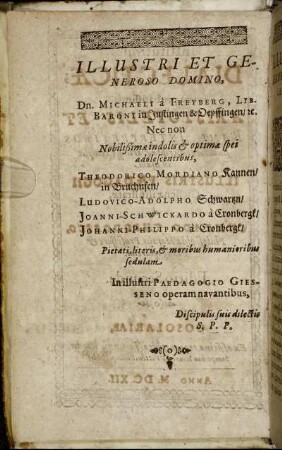 ILLUSTRI ET GE-
NEROSO DOMINO,
Dn. MICHAELI à FREYBERG, LIB.
BARONI in Justingen & Oepffingen/ ꝛc.
Nec non
Nobilißimæ indolis & optimæ spei
adolescentibus,
THEODORICO MORDIANO Kannen/
in Bruchusen/
LUDOVICO-ADOLPHO Schwartzn/
JOANNI-SCHWICKARDO à Cronbergk/
JOHANNI-PHILIPPO à Cronbergk/
Pietati, literis, & moribus humanioribus
sedulam
In illustri PAEDAGOGIO GIES-
SENO operam navantibus,
Discipulis suis dilectis
S. P. P.